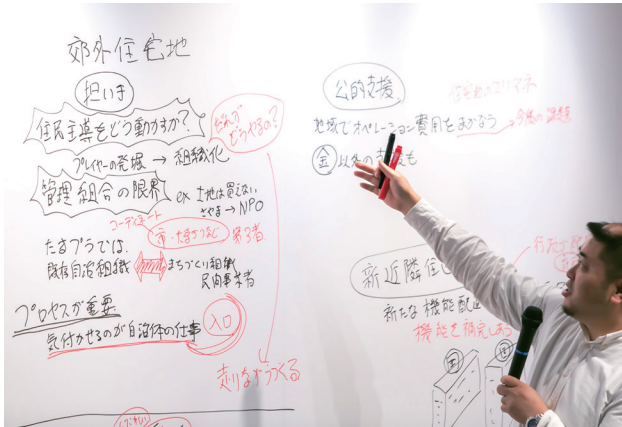 郊外住宅地
担い手
住民主導をどう動かすか?
だれが
どうやるの?
プレイヤーの発掘 → 組織化
管理組合の限界
ex 土地は買えない
さやま→NPO
コーディネート
第3者
たまプラでは、
既存自治組織
まちづくり組織
民間事業者
プロセスが重要
気付かせるのが自治体の仕事
入口
走りながらつくる
公的支援
住宅地のエリマネ
地域でオペレーション費用をまかなう
今後の課題
金 以外の支援も
新近隣住
新たな機能配
機能を補完しあう